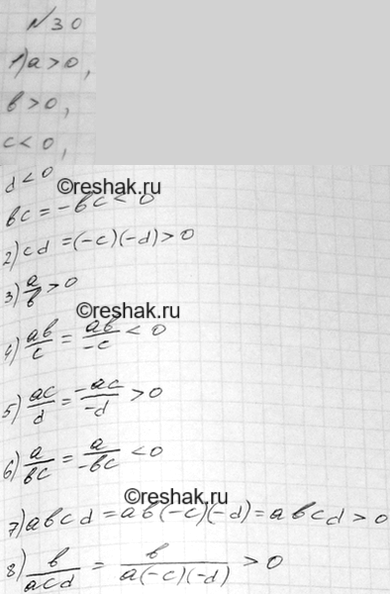 №30
1) a > 0,
b > 0,
c < 0,
d < 0
©reshak.ru
bc = -bc < 0
2) cd = (-c)(-d) > 0
3) a/b > 0
©reshak.ru
4) ab/c = ab/-c < 0
5) ac/d = -ac/-d > 0
6) a/bc = a/-bc < 0
©reshak.ru
7) abcd = ab(-c)(-d) = abcd > 0
8) b/acd = b/a(-c)(-d) > 0